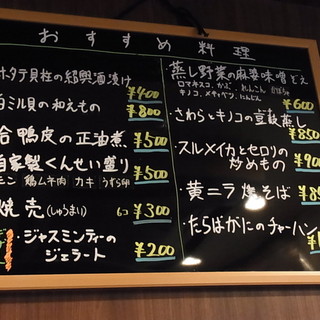 おすすめ料理
ホタテ貝柱の紹興酒漬け
¥400
白ミル貝の和えもの
¥800
合鴨皮の正油煮
¥500
自家製くんせい盛り
鶏ムネ肉 カキ うずら卵
¥500
焼売(しゅうまい) 6コ ¥300
・ジャスミンティーの
ジェラート
¥200
蒸し野菜の麻婆味噌ぞえ
ロマネスコ、かぶ、れんこん
キノコ、
¥600
・さわらとキノコの豆豉蒸し
¥850
・スルメイカとセロリの
炒めもの
・黄ニラ焼そば
・たらばがにのチャーハン